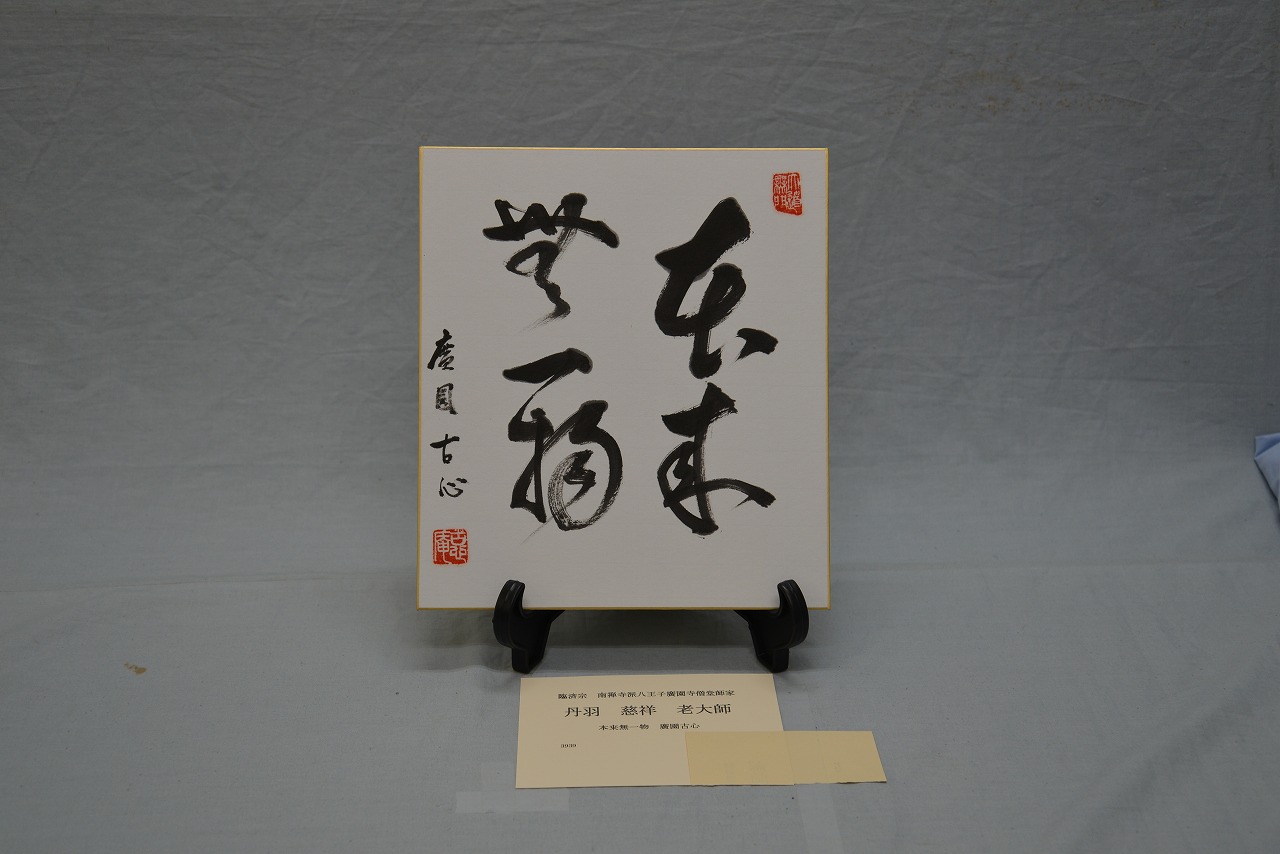 本来
無一物
廣園 古心
臨済宗　南禅寺派八王子廣園寺僧堂師家
丹羽　慈祥　老大師
本来無一物　廣園古心
3939